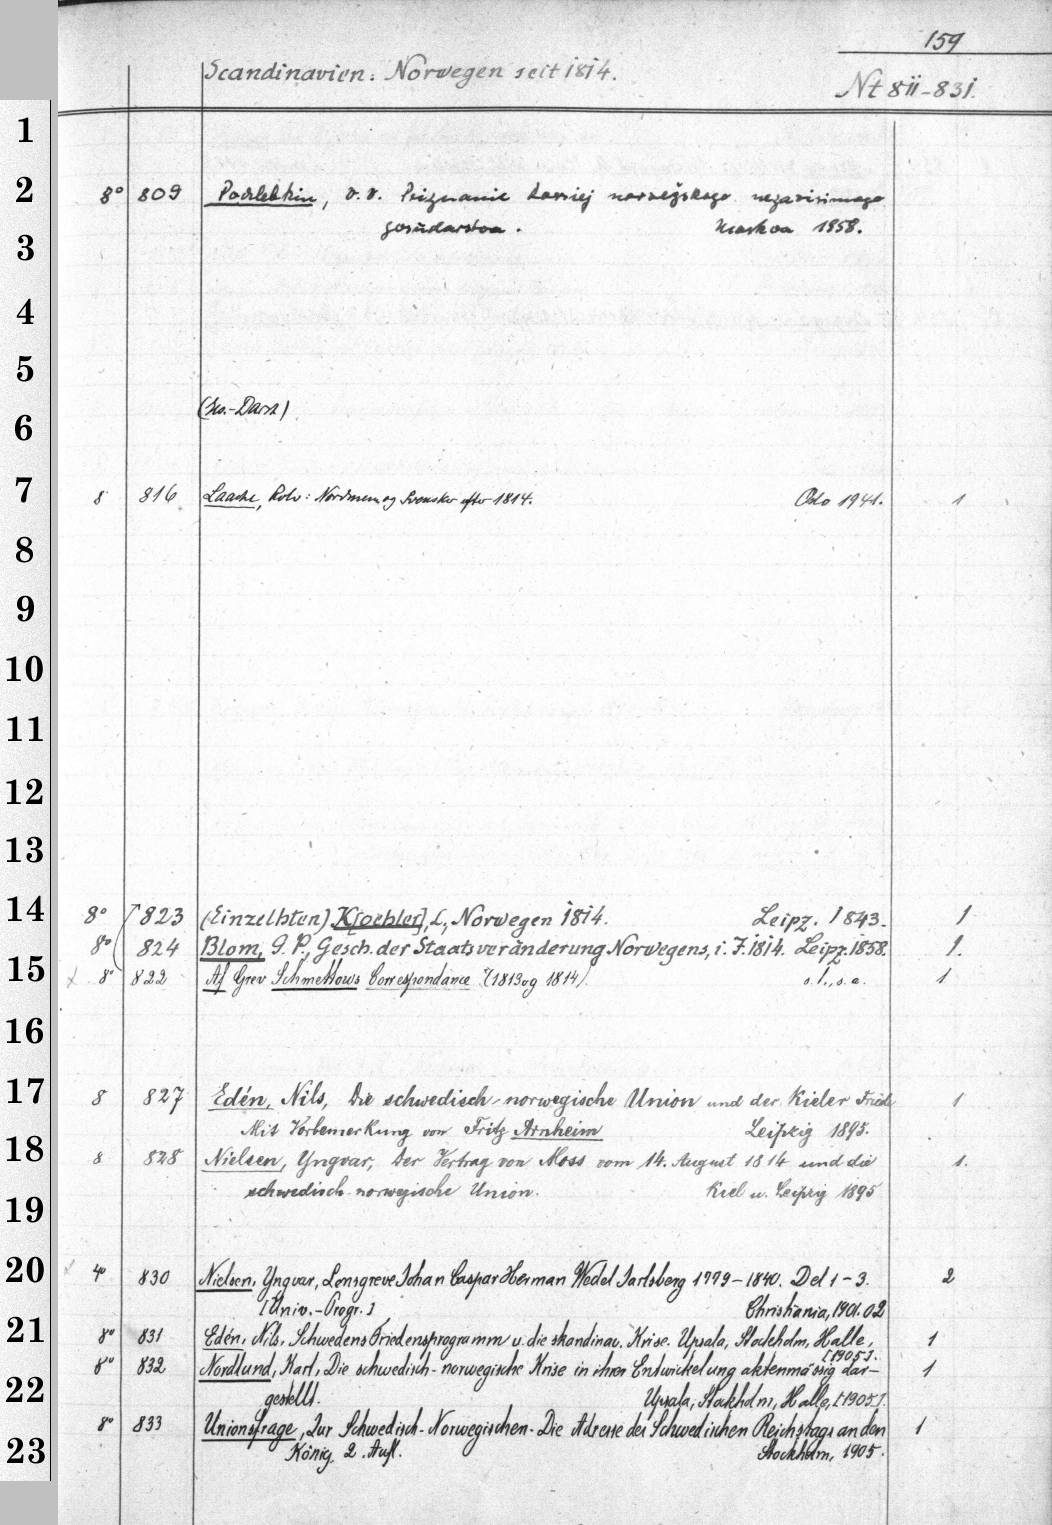 159
Scandinavien: Norwegen seit 1814.
Nt 811-831.
1
2
8° 809 Pochlebkin, V. V. Priznanie Rossiej norvežskogo nezavisimogo
gosudarstva. Moskva 1958.
3
4
5
(Ges.-Darst)
6
7
8 816 Laache, Rolv: Nordmenn og Svensker efter 1814. Oslo 1941. 1
8
9
10
11
12
13
14
8° 823 (Einzelhten) K[oehler], L., Norwegen 1814. Leipz. 1843. 1
8° 824 Blom, G. P., Gesch. der Staatsveränderung Norwegens, i. J. 1814. Leipz. 1858. 1.
15
x 8° 822 Af Grev Schmettows Correspondance (1813 og 1814). s. l., s. a. 1
16
17
8 827 Edén, Nils, Die schwedisch-norwegische Union und der Kieler Friede 1
Mit Vorbemerkung von Fritz Arnheim Leipzig 1895.
18
8 828 Nielsen, Yngvar, Der Vertrag von Moss vom 14. August 1814 und die 1.
schwedisch-norwegische Union. Kiel u. Leipzig 1895
19
20
4° 830 Nielsen, Yngvar, Lensgreve Johan Caspar Herman Wedel Jarlsberg 1779-1840. Del 1-3. 2
[Univ.-Progr.] Christiania, 1901.02
21
8° 831 Edén, Nils, Schwedens Friedensprogramm u. die skandinav. Krise. Upsala, Stockholm, Halle, 1
[1905].
8° 832 Nordlund, Karl, Die schwedisch-norwegische Krise in ihrer Entwickelung aktenmässig dar- 1
22
gestellt. Upsala, Stockholm, Halle, [1905].
8° 833 Unionsfrage, Zur Schwedisch-Norwegischen. Die Adresse des Schwedischen Reichstags an den 1
23
König. 2. Aufl. Stockholm, 1905.